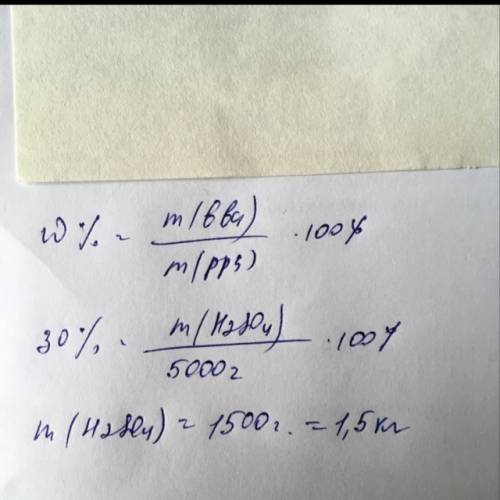 ω% = m(вва) / m(рра) · 100%
30% = m(H2SO4) / 5000г · 100%
m(H2SO4) = 1500г. = 1,5кг